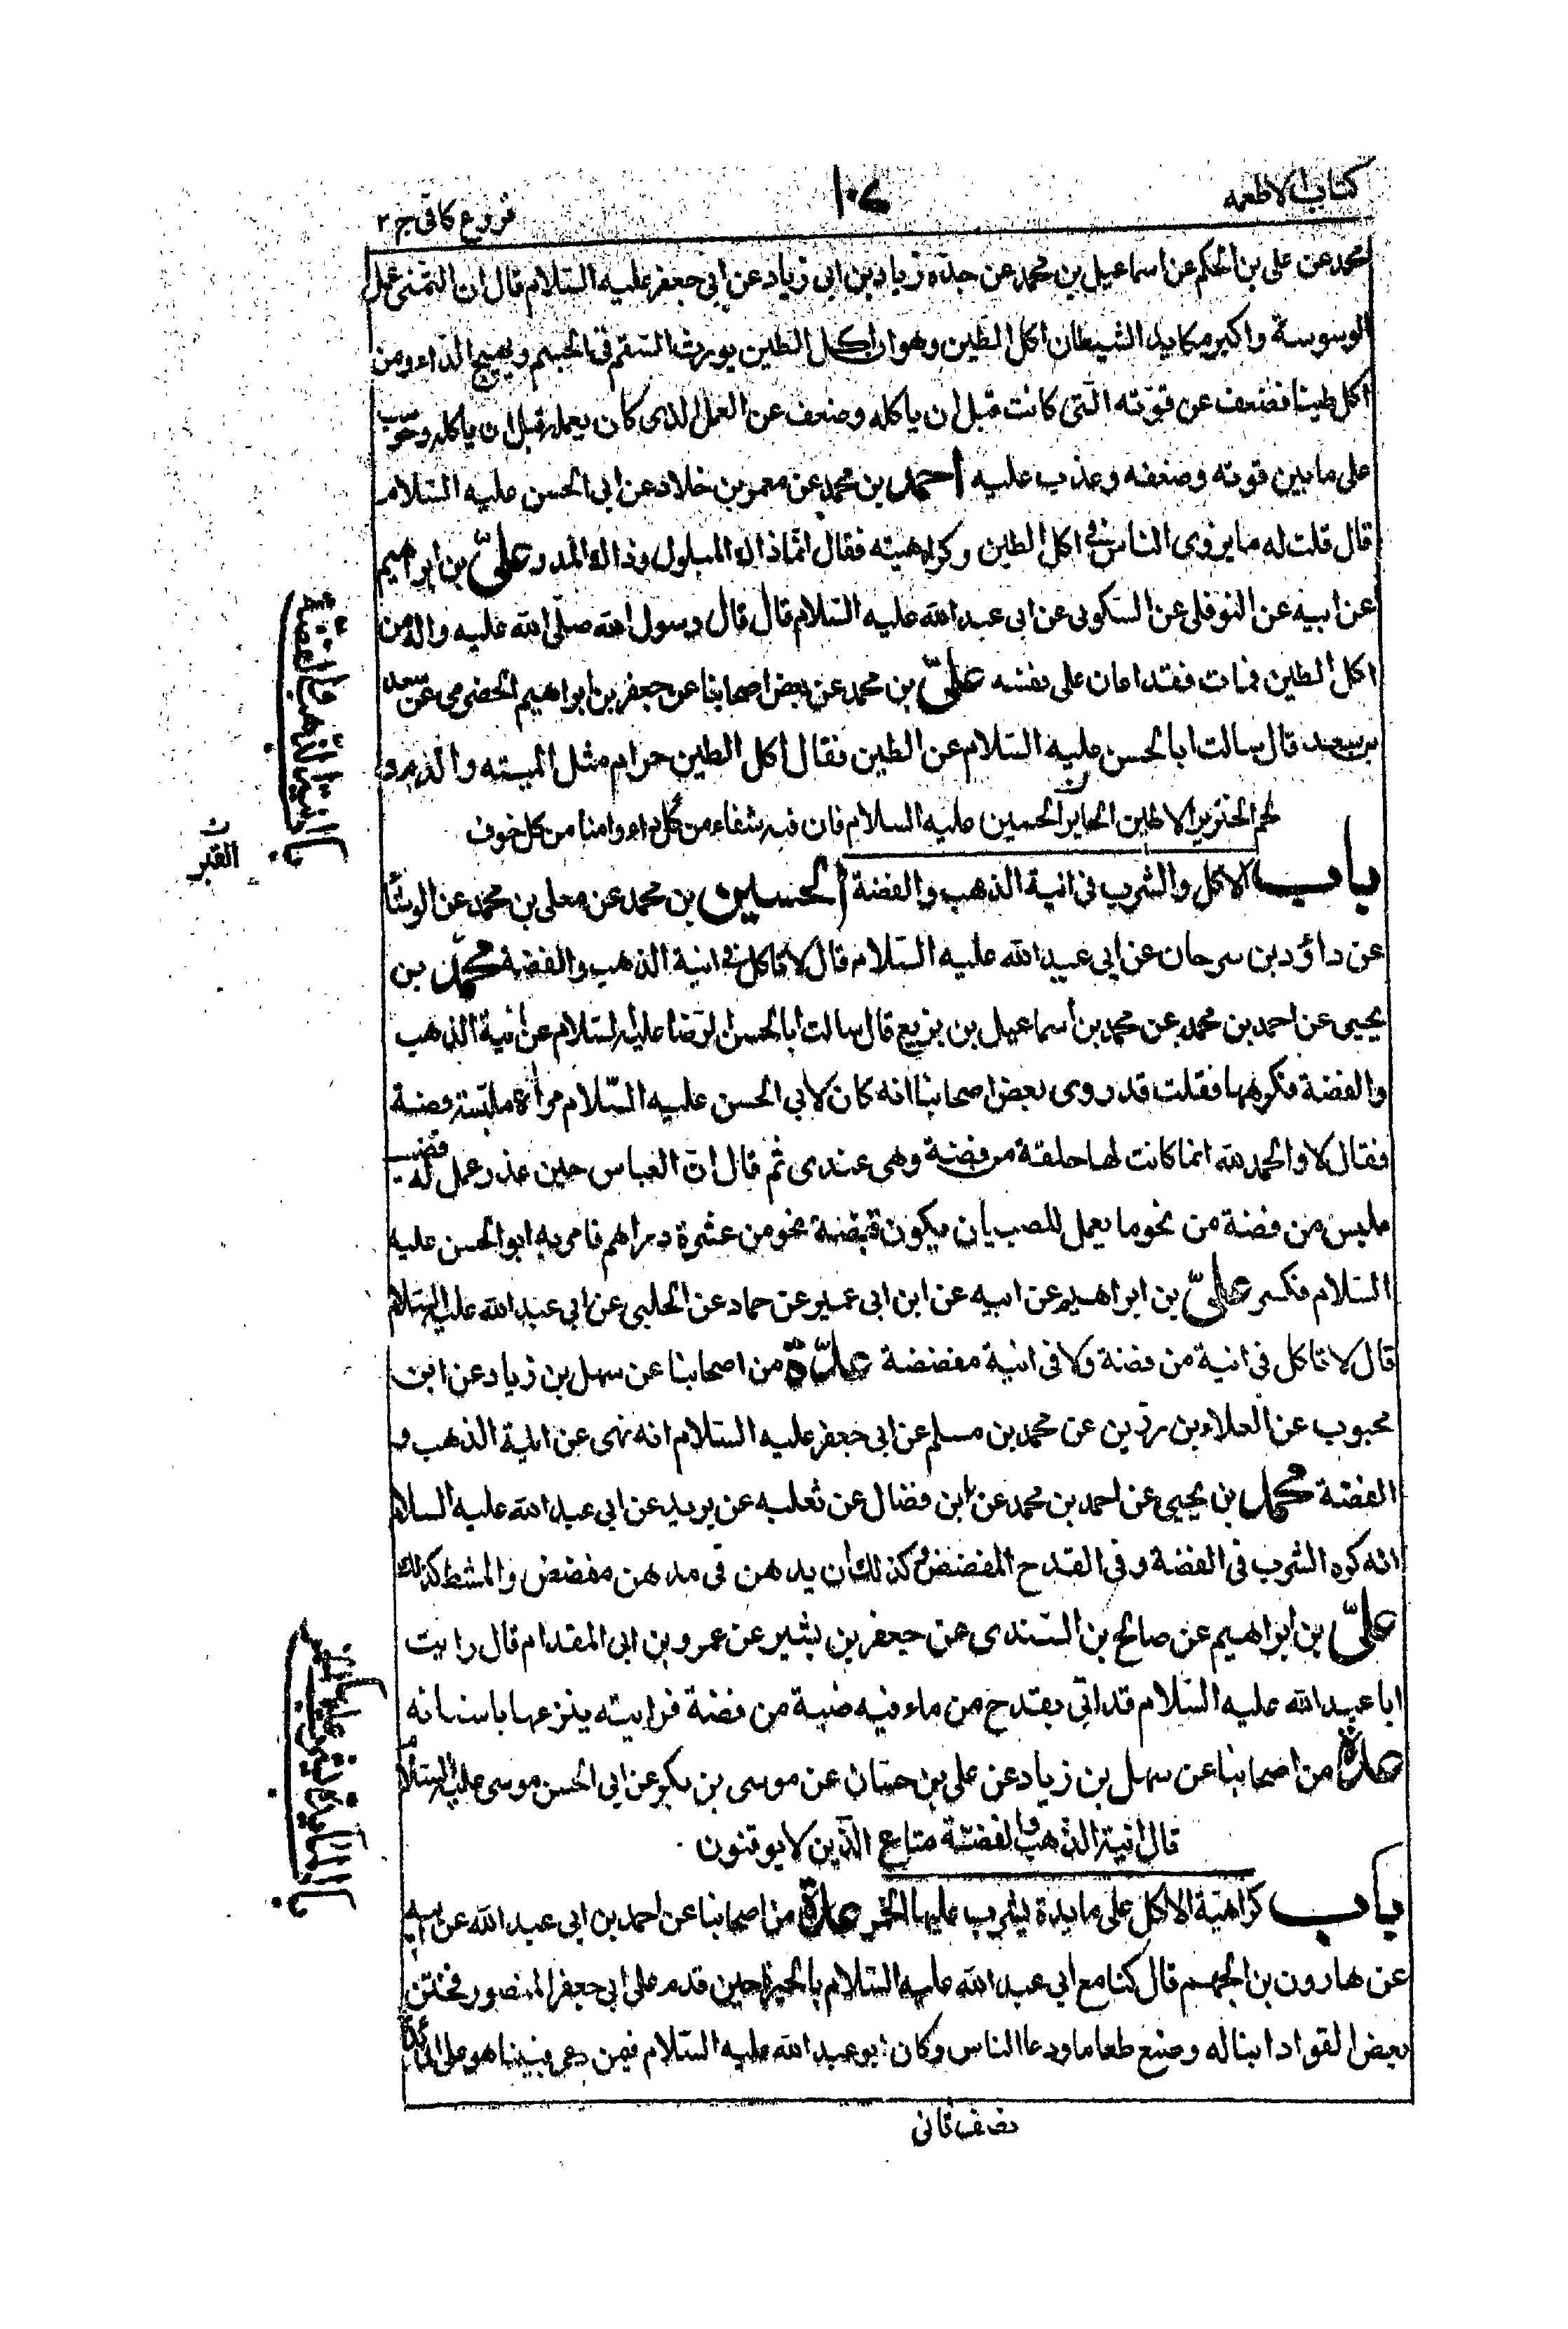 كتاب الاطعمه
١٠٤
فروع كافى ج ٢
محمد عن على بن الحكم عن اسماعيل بن محمد عن جده زياد بن ابى زياد عن ابى جعفر عليه السلام قال ان التمنى عمل
الوسوسة واكبر مكايد الشيطان اكل الطين وهو ان اكل الطين يورث السقم فى الجسم ويهيج الداء ومن
اكل طينا فضعف عن قوته التى كانت قبل ان ياكله وضعف عن العمل الذى كان يعمله قبل ان ياكله وحوسب
على ما بين قوته وضعفه وعذب عليه احمد بن محمد عن معمر بن خلاد عن ابى الحسن عليه السلام
قال قلت له ما يروى الناس فى اكل الطين وكراهيته فقال انما ذاك المبلول وذاك المدر علىّ بن ابراهيم
عن ابيه عن النوفلى عن السكونى عن ابى عبد الله عليه السلام قال قال رسول الله صلى الله عليه واله من
اكل الطين فمات فقد اعان على نفسه علىّ بن محمد عن بعض اصحابنا عن جعفر بن ابراهيم الحضرمى عن سعد
بن سعد قال سالت ابا الحسن عليه السلام عن الطين فقال اكل الطين حرام مثل الميته والدم و
لحم الخنزير الا طين الحاير الحسين عليه السلام فان فيه شفاء من كل داء وامنا من كل خوف
ن
القبر
باب الاكل والشرب فى انية الذهب والفضة الحسين بن محمد عن معلى بن محمد عن الوشّا
عن داؤد بن سرحان عن ابى عبد الله عليه السلام قال لا تاكل فى انية الذهب والفضة محمد بن
يحيى عن احمد بن محمد عن محمد بن اسماعيل بن بزيع قال سالت ابا الحسن الرضا عليه السلام عن انية الذهب
والفضة فكرهها فقلت قد روى بعض اصحابنا انه كان لابى الحسن عليه السلام مراة ملبسة فضة
فقال لا والحمد لله انما كانت لها حلقة من فضة وهى عندى ثم قال ان العباس حين عذر عمل له قضيب
ملبس من فضة من نحو ما يعمل للصبيان يكون قبضة نحو من عشرة دراهم فامر به ابو الحسن عليه
السلام فكسر علىّ بن ابراهيم عن ابيه عن ابن ابى عمير عن حماد عن الحلبى عن ابى عبد الله عليه السلام
قال لا تاكل فى انية من فضة ولا فى انية مفضضة عدّة من اصحابنا عن سهل بن زياد عن ابن
محبوب عن العلاء بن رزين عن محمد بن مسلم عن ابى جعفر عليه السلام انه نهى عن انية الذهب و
الفضة محمد بن يحيى عن احمد بن محمد عن ابن فضال عن ثعلبه عن بريد عن ابى عبد الله عليه السلام
انه كره الشرب فى الفضة وفى القدح المفضض وكذلك ان يدهن فى مدهن مفضض والمشط كذلك
علىّ بن ابراهيم عن صالح بن السندى عن جعفر بن بشير عن عمرو بن ابى المقدام قال رايت
ابا عبد الله عليه السلام قد اتى بقدح من ماء فيه ضبة من فضة فرايته ينزعها باسنانه
عدة من اصحابنا عن سهل بن زياد عن على بن حسان عن موسى بن بكر عن ابى الحسن موسى عليه السلام
قال انية الذهب والفضة متاع الذين لا يوقنون
باب كراهية الاكل على مايدة يشرب عليها الخمر عدة من اصحابنا عن احمد بن ابى عبد الله عن ابيه
عن هارون بن الجهم قال كنا مع ابى عبد الله عليه السلام بالحيرة حين قدم على ابى جعفر المنصور فختن
بعض القواد ابنا له وصنع طعاما ودعا الناس وكان ابو عبد الله عليه السلام فيمن دعى فبينا هو على المائدة
نصف ثانى